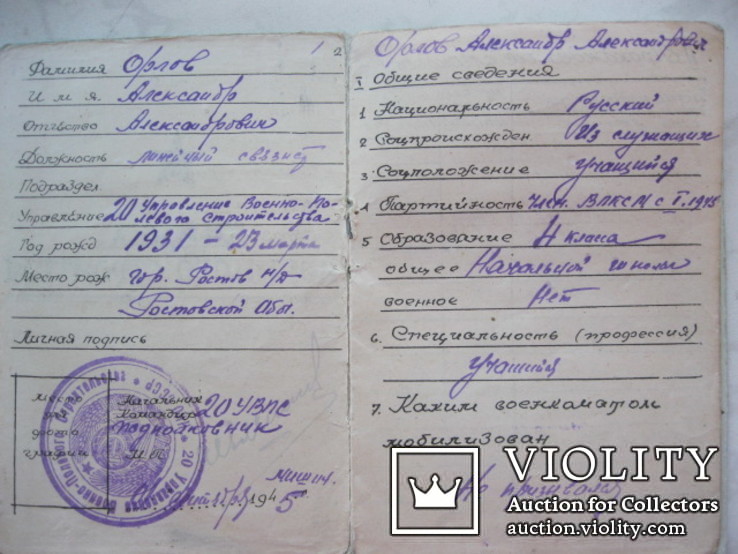 2
Фамилия Орлов
Имя. Александр
Отчество Александрович
Должность линейный связист
Подраздел.
Управление 20 Управление Военно-По-
левого Строительства
Год рожд 1931 - 23 марта
Место рож. гор. Ростов н/Д
Ростовской Обл.
Личная подпись
место
для
фото
графии
Начальник
Командир 20 УВПС
подполковник
М.П.
1945
Орлов Александр Александрович
I Общие сведения
1 Национальность Русский
2 Соцпроисхожден Из служащих
3 Соцположение учащийся
4 Партийность Член. ВЛКСМ с I.1945
5 Образование 4 класа
общее Начальной школы
военное Нет
6. Специальность (профессия)
учащийся
7. Каким военкоматом
мобилизован
Не призывался
20 Управление Военно-Полевого Строительства
VIOLITY
Auction for Collectors
auction.violity.com